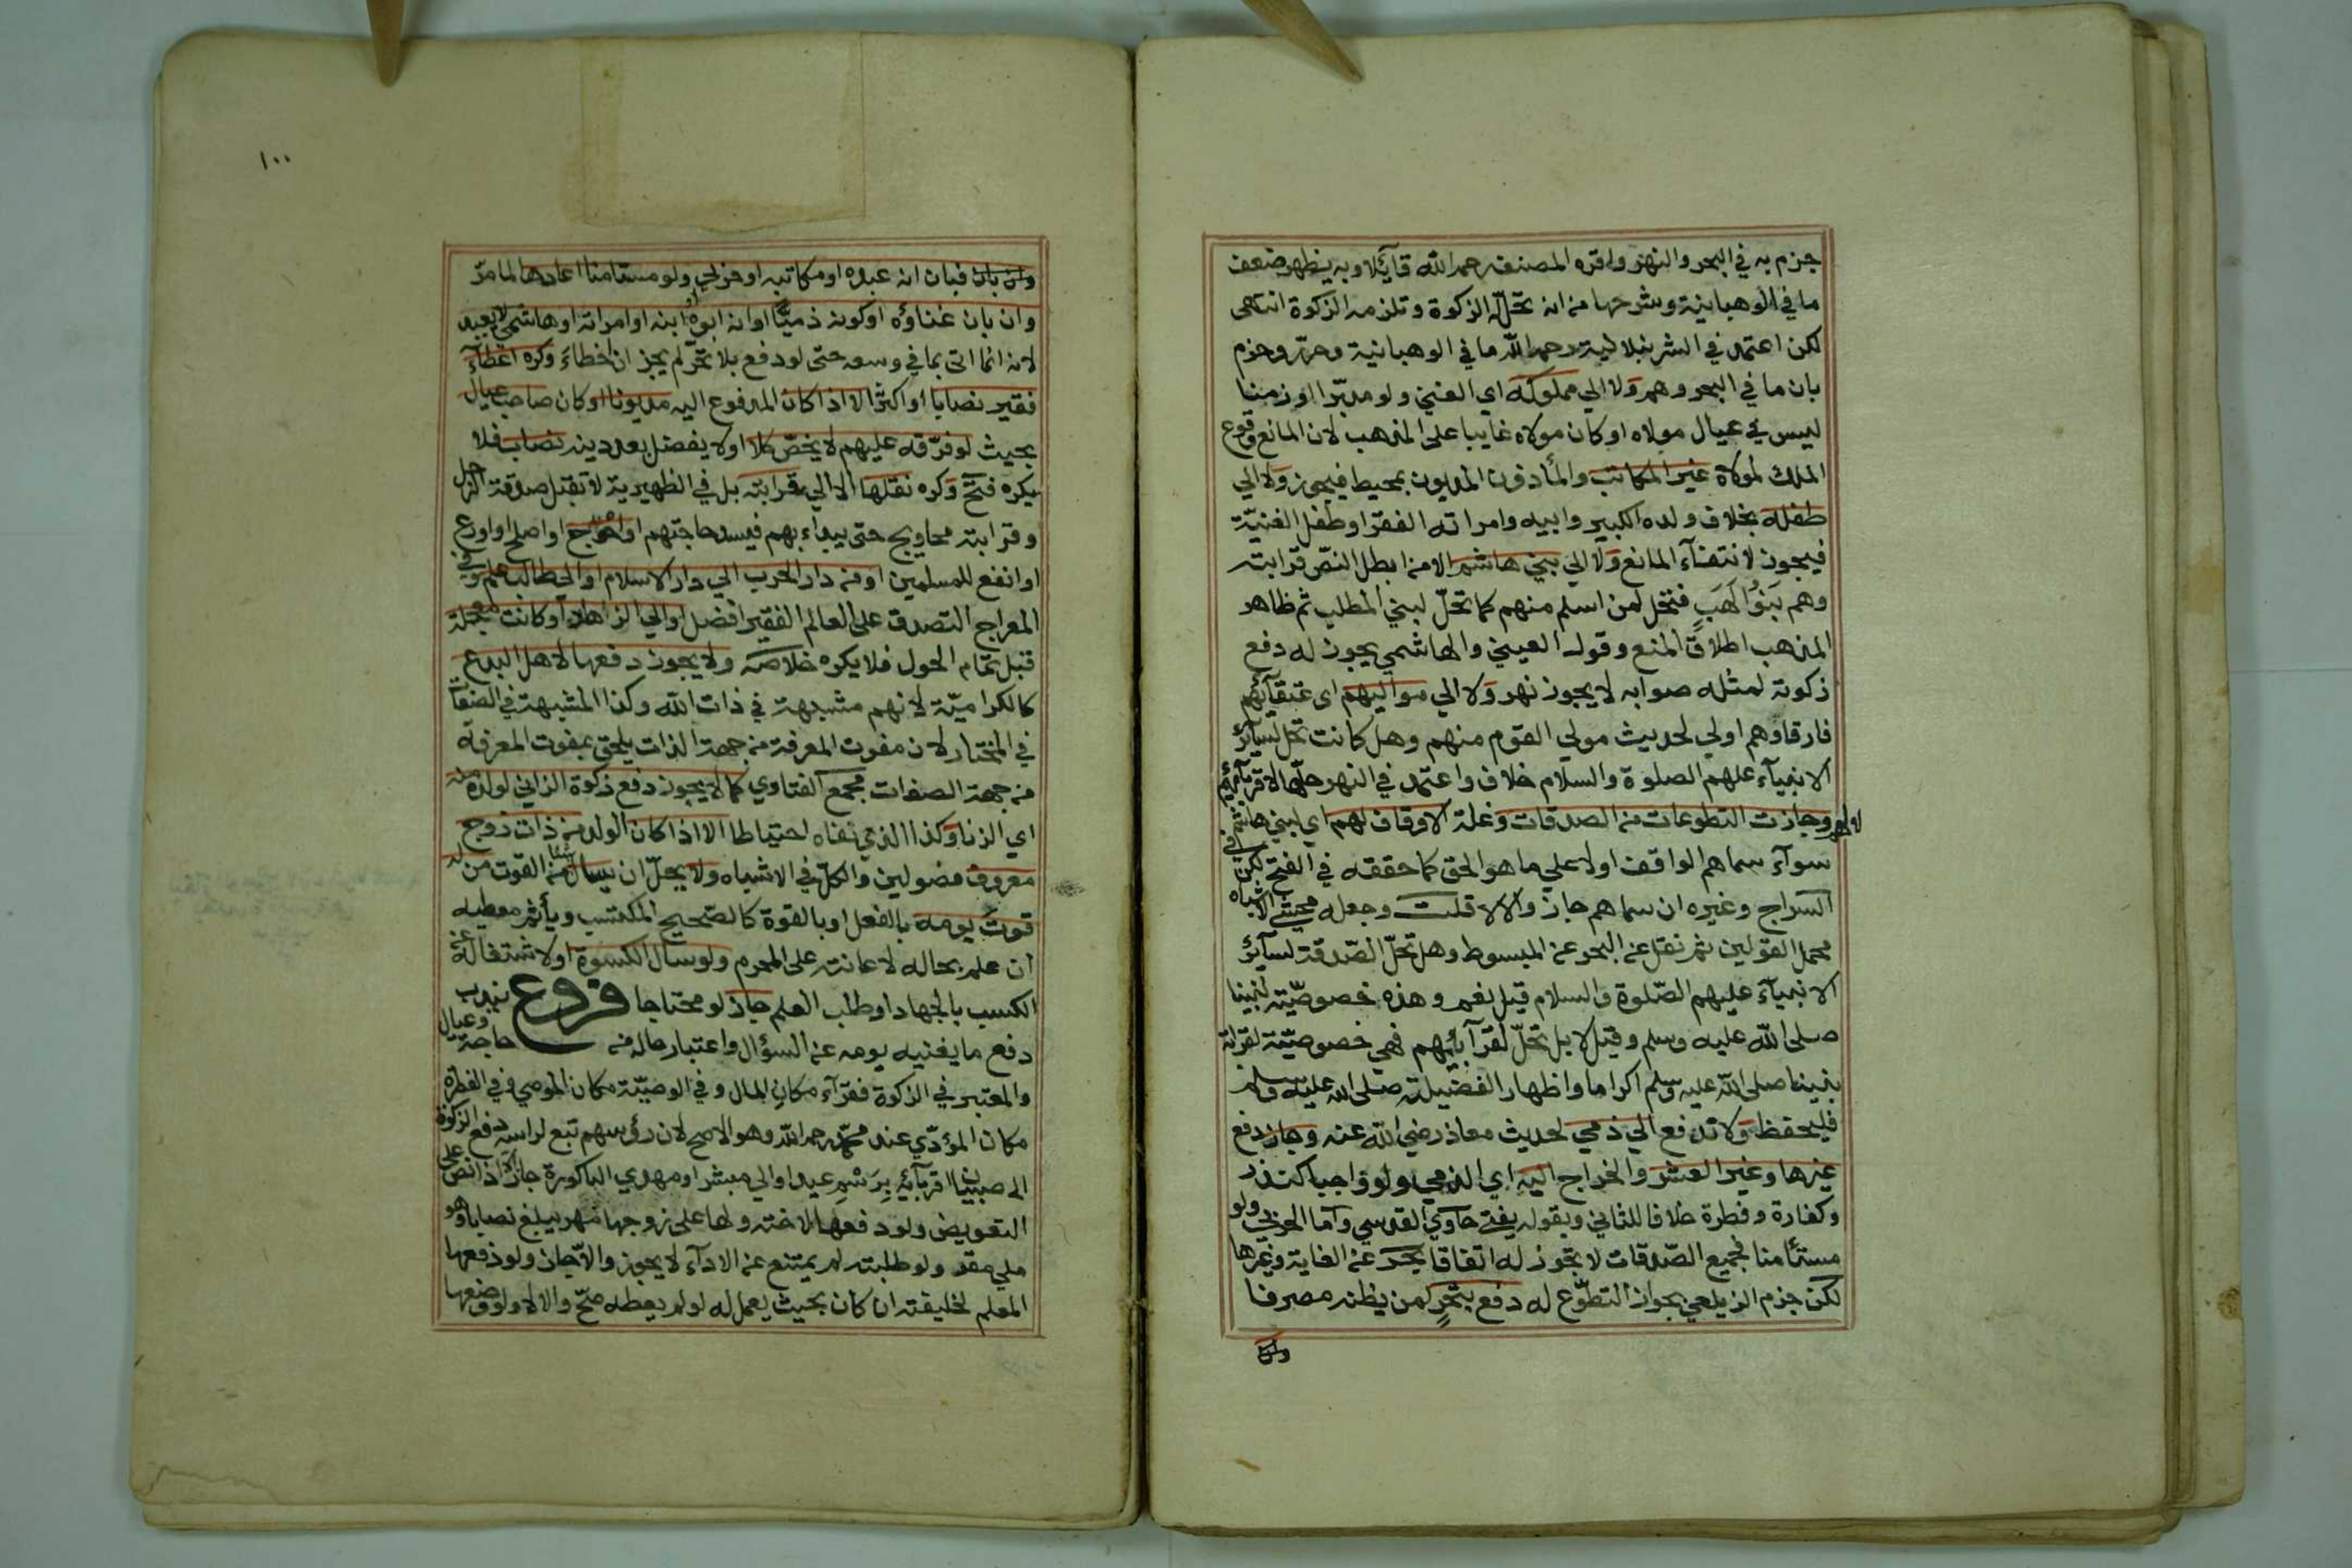 جزم به في البحر والنهر واقره المصنف رحمه الله قائلا وبه يظهر ضعف
ما في الوهبانية وشرحها من انه تحل له الزكوة وتلزمه الزكوة انتهى
لكن اعتمد في الشرنبلالية رحمه الله ما في الوهبانية وحرر وجزم
بان ما في البحر وهم ولا الي مملوكه اي الغني ولو مدبرا او زمنا
ليس في عيال مولاه او كان مولاه غايبا على المذهب لان المانع وقوع
الملك لمولاه غير المكاتب والمأذون المديون بمحيط فيجوز ولا الي
طفله بخلاف ولده الكبير وابيه وامراته الفقرا وطفل الغنية
فيجوز لانتفاء المانع ولا الي بني هاشم الا من ابطل النص قرابته
وهم بنو لهب فتحل لمن اسلم منهم كما تحل لبني المطلب ثم ظاهر
المذهب اطلاق المنع وقول العيني والهاشمي يجوز له دفع
زكوته لمثله صوابه لا يجوز نهر ولا الي مواليهم اى عتقآئهم
فارقاؤهم اولي لحديث مولي القوم منهم وهل كانت تحل لسآئر
الانبيآء عليهم الصلوة والسلام خلاف واعتمد في النهر حلها لاقربآئهم
وجازت التطوعات من الصدقات وغلة الاوقاف لهم اي لبني هاشم
سوآء سماهم الواقف اولا علي ما هو الحق كما حققه في الفتح لكن في
السراج وغيره ان سماهم جاز والا لا قلت وجعله محشي الاشباه
محمل القولين ثم نقل عن البحر عن المبسوط وهل تحل الصدقة لسآئر
الانبيآء عليهم الصلوة والسلام قيل نعم وهذه خصوصية لنبينا
صلى الله عليه وسلم وقيل لا بل تحل لقرآبائهم فهي خصوصية لقرابة
نبينا صلى الله عليه وسلم اكراما واظهار الفضيلته صلى الله عليه وسلم
فليحفظ ولا تدفع الي ذمي لحديث معاذ رضي الله عنه وجاز دفع
غيرها وغير العشر والخراج اليه اي الذمي ولو واجبا كنذر
وكفارة وفطرة خلافا للثاني وبقوله يفتي حاوي القدسي وأما الحربي ولو
مستأمنا فجميع الصدقات لا تجوز له اتفاقا بحر عن الغاية وغيرها
لكن جزم الزيلعي بجواز التطوع له دفع بتحر لمن يظنه مصرفا
١٠٠
فبان انه عبده او مكاتبه او حربي ولو مستامنا اعادها لما مر
وان بان غناؤه او كونه ذميا او انه ابوه او ابنه او امراته او هاشمي لا يعيد
لانه انما اتى بما في وسعه حتى لو دفع بلا تحر لم يجز ان اخطاء وكره اعطآء
فقير نصابا او اكثر الا اذا كان المدفوع اليه مديونا او كان صاحب عيال
بحيث لو فرقه عليهم لا يخص كلا اولا يفضل بعد دينه نصاب فلا
يكره فتح وكره نقلها الا الي قرابته بل في الظهيرية لا تقبل صدقة الرجل
وقرابته محاويج حتى يبداء بهم فيسد حاجتهم او احوج او اصلح او اورع
او انفع للمسلمين او من دار الحرب الي دار الاسلام او الي طالب علم وفي
المعراج التصدق على العالم الفقير افضل او الي الزاهد او كانت معجلة
قبل تمام الحول فلا يكره خلاصه ولا يجوز دفعها لاهل البدع
كالكرامية لانهم مشبهة في ذات الله وكذا المشبهة في الصفات
في المختار لان مفوت المعرفة من جهة الذات يلحق بمفوت المعرفه
من جهة الصفات مجمع الفتاوي كما لا يجوز دفع زكوة الزاني لولده منه
اي الزنا وكذا الذي نفاه احتياطا الا اذا كان الولد من ذات زوج
معروف فصولين والكل في الاشباه ولا يحل ان يسال شيئا من القوت من له
قوت يومه بالفعل او بالقوة كالصحيح المكتسب ويأثم معطيه
ان علم بحاله لاعانته على المحرم ولو سال الكسوة او لاشتغاله عن
الكسب بالجهاد او طلب العلم جاز لو محتاجا فروع يندب
دفع ما يغنيه يومه عن السؤال واعتبار حاله من حاجة وعيال
والمعتبر في الزكوة فقرآء مكان المال وفي الوصية مكان الموصي وفي الفطرة
مكان المؤدي عند محمد رحمه الله وهو الاصح لان رؤسهم تبع لراسه دفع الزكوة
الى صبيان اقربآئه برسم عيد او الي مبشر او مهدي الباكورة جاز الا اذا نص على
التعويض ولو دفعها لاخته ولها على زوجها مهر يبلغ نصابا وهو
ملي مقر ولو طلبته لم يمتنع عن الادآء لا يجوز والا جاز ولو دفعها
المعلم لخليفته ان كان بحيث يعمل له لو لم يعطه صح والا لا ولو وضعها